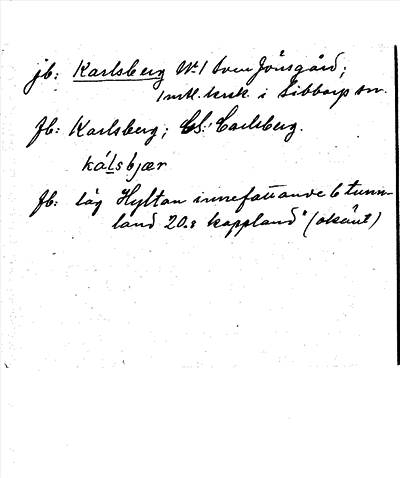 jb: Karlsberg No 1 Sven Jönsgård;
1 mtl. krsk. i Sibbarp sn.
Jb: Karlsberg; CS: Carlsberg.
kálsbjær
Jb: låg Hyltan innefattande 6 tunn-
land 20.8 kappland" (okänt)